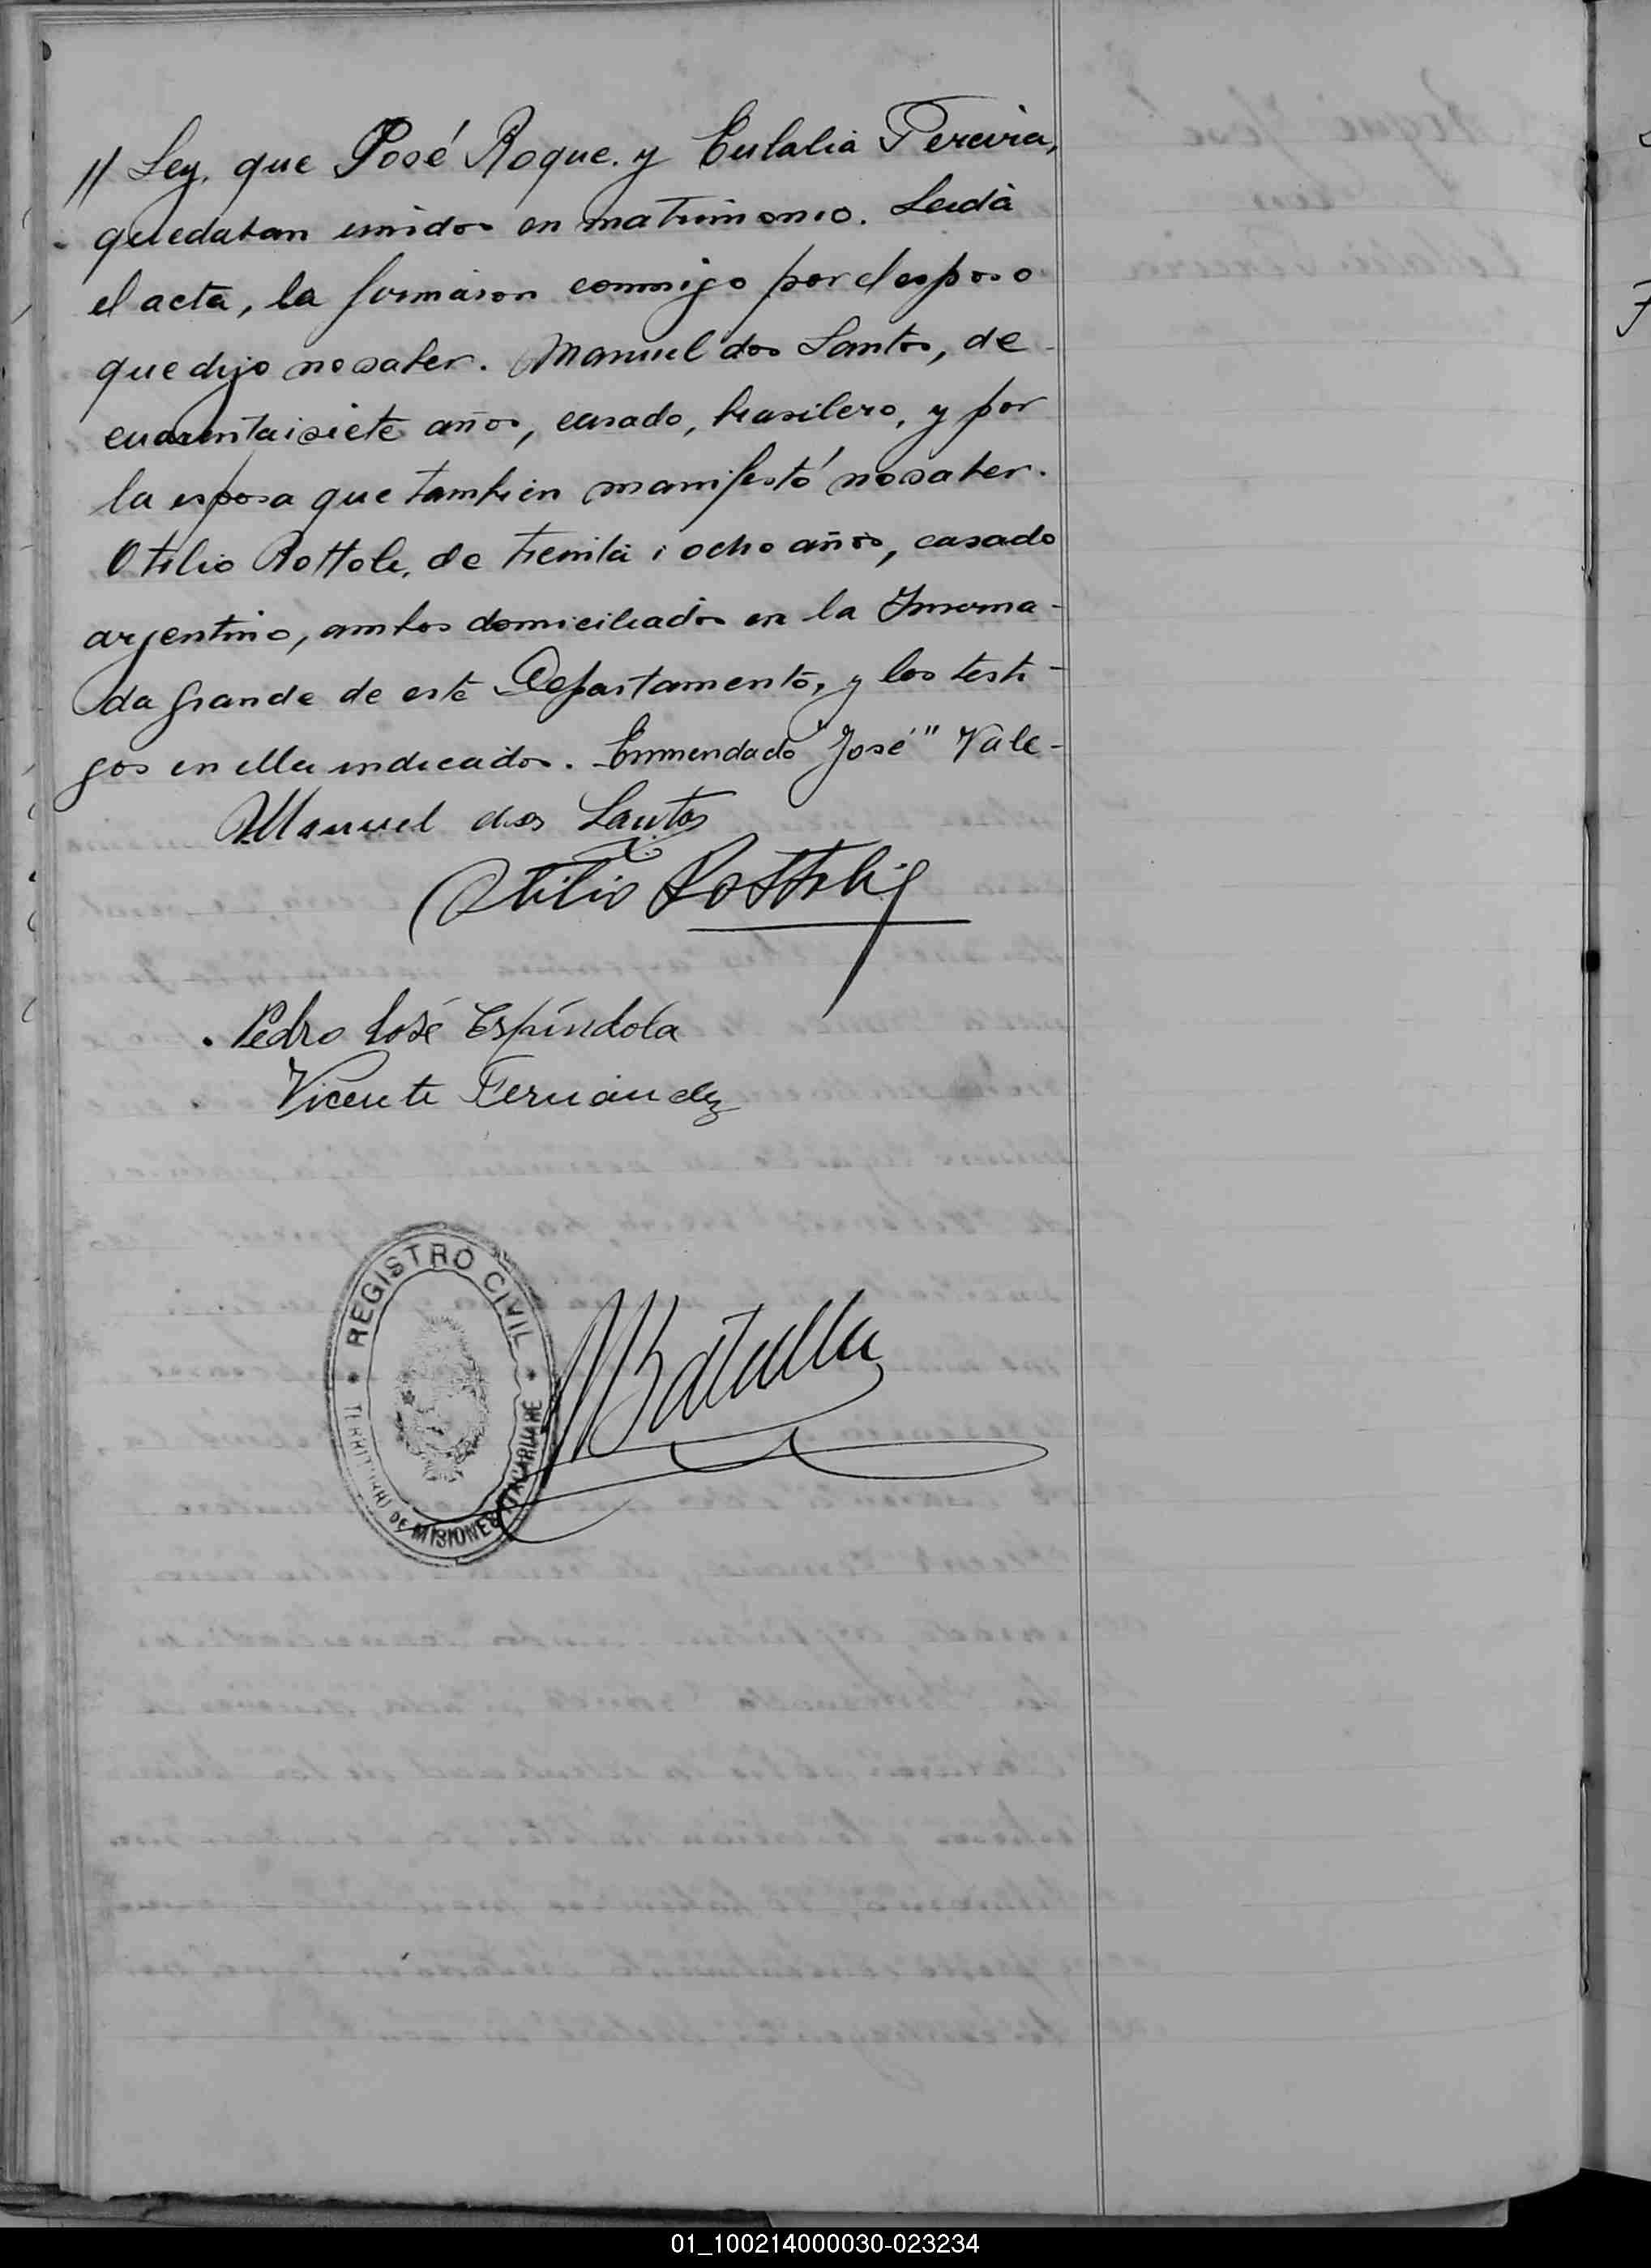 // Ley, que José Roque y Eulalia Pereira,
quedaban unidos en matrimonio. Leida
el acta, la firmaron conmigo por el esposo
que dijo no saber. Manuel dos Santos, de
cuarentaisiete años, casado, brasilero, y por
la esposa que tambien manifestó no saber.
Otilio Rottoli, de treinta i ocho años, casado
argentino, ambos domiciliados en la
da grande de este Departamento, y los testi-
gos en ella indicados. Enmendado "José" Vale-
Manuel dos Santos
Otilio Rottoli
Pedro José Espíndola
Vicente Fernández
REGISTRO CIVIL
TERRITORIO DE MISIONES ITACARUARE
MBatalla
01_100214000030-023234